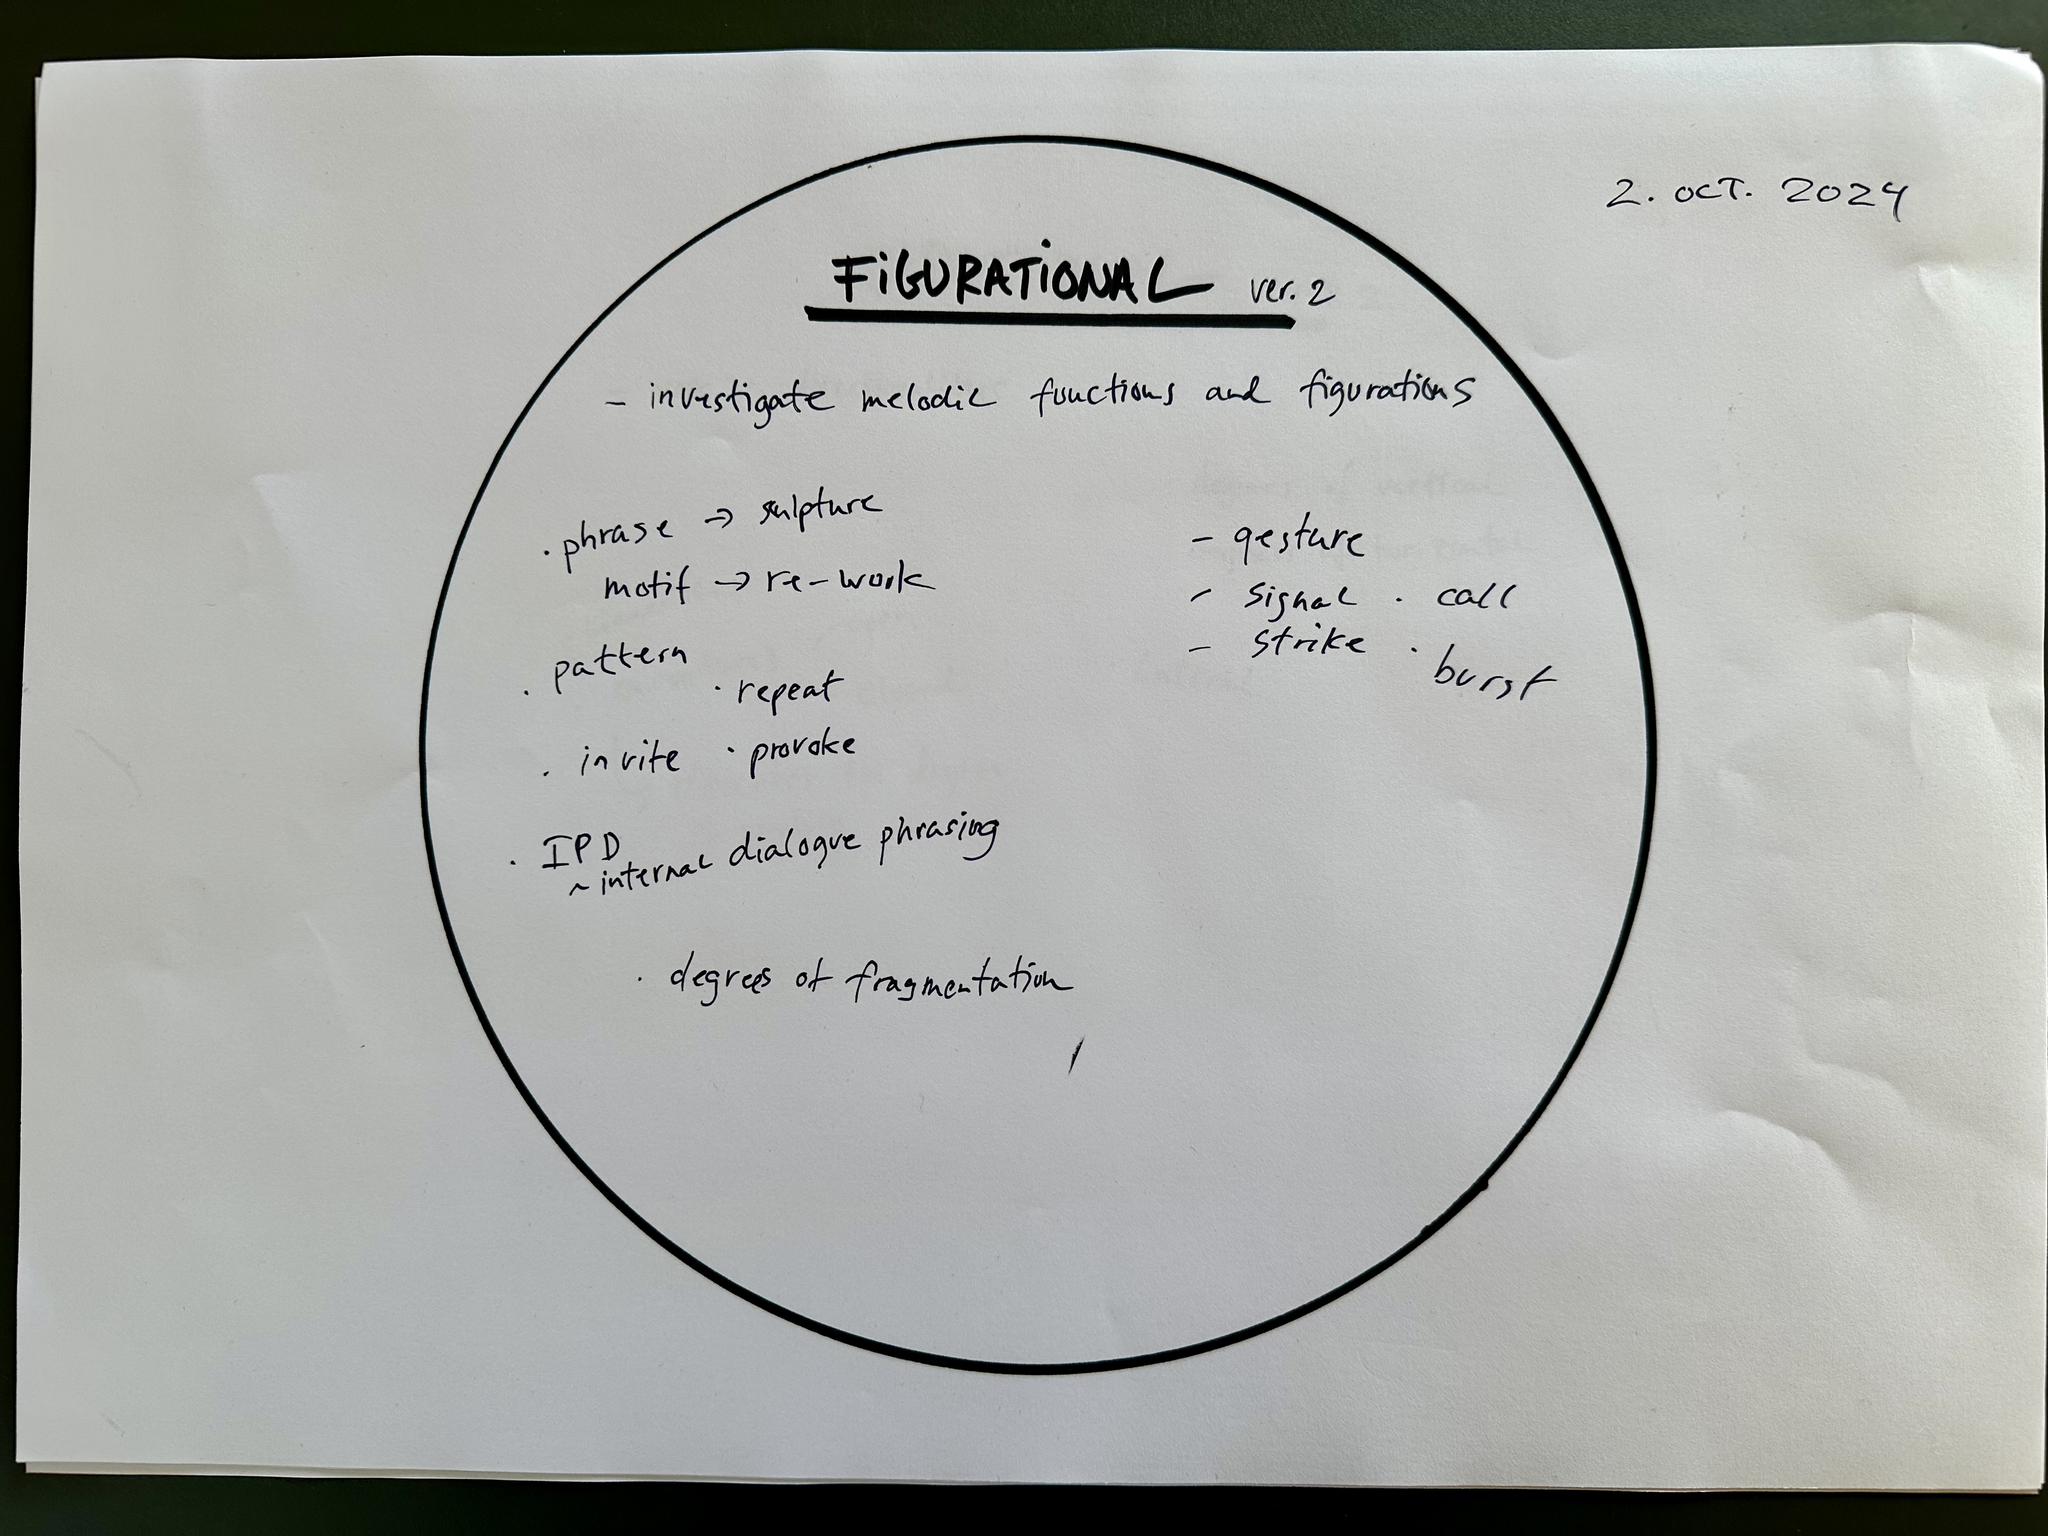 2. OCT. 2024
FIGURATIONAL ver. 2
- investigate melodic functions and figurations
· phrase → sulpture
motif → re-work
· pattern
· repeat
· invite · provoke
· IPD
~ internal dialogue phrasing
· degrees of fragmentation
- gesture
- signal · call
- strike · burst